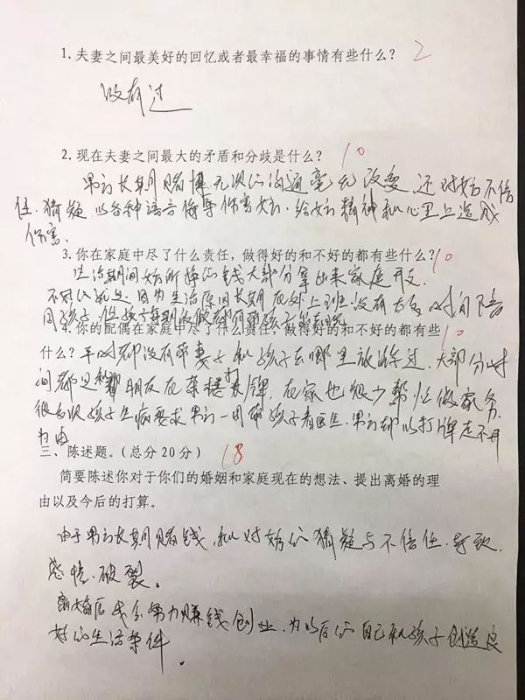 1.夫妻之间最美好的回忆或者最幸福的事情有些什么? 2
没有过
2.现在夫妻之间最大的矛盾和分歧是什么? 10
男方长期赌博无法沟通毫无改变,还对女方不信
任.猜疑.以各种语言侮辱伤害女方.给女方精神和心里上造成
伤害.
3.你在家庭中尽了什么责任,做得好的和不好的都有些什么? 10
生活期间女方所挣的钱大部分拿出来家庭开支.
不好的就是因为生活原因长期在外上班.没有太多时间陪
同孩子.
4.你的配偶在家庭中尽了什么责任,做得好的和不好的都有些 10
什么?平时都没有带妻子和孩子去哪里放游过.大部分时
间都是和朋友在茶楼打牌.在家也很少帮忙做家务.
很多次孩子生病要求男方一同带孩子看医生.男方却以打牌走不开
为由
三、陈述题。(总分20分) 18
简要陈述你对于你们的婚姻和家庭现在的想法、提出离婚的理
由以及今后的打算。
由于男方长期赌钱,和对女方的猜疑与不信任.导致
感情.破裂。
离婚后我会努力赚钱创业,为以后的自己和孩子创造良
好的生活条件。